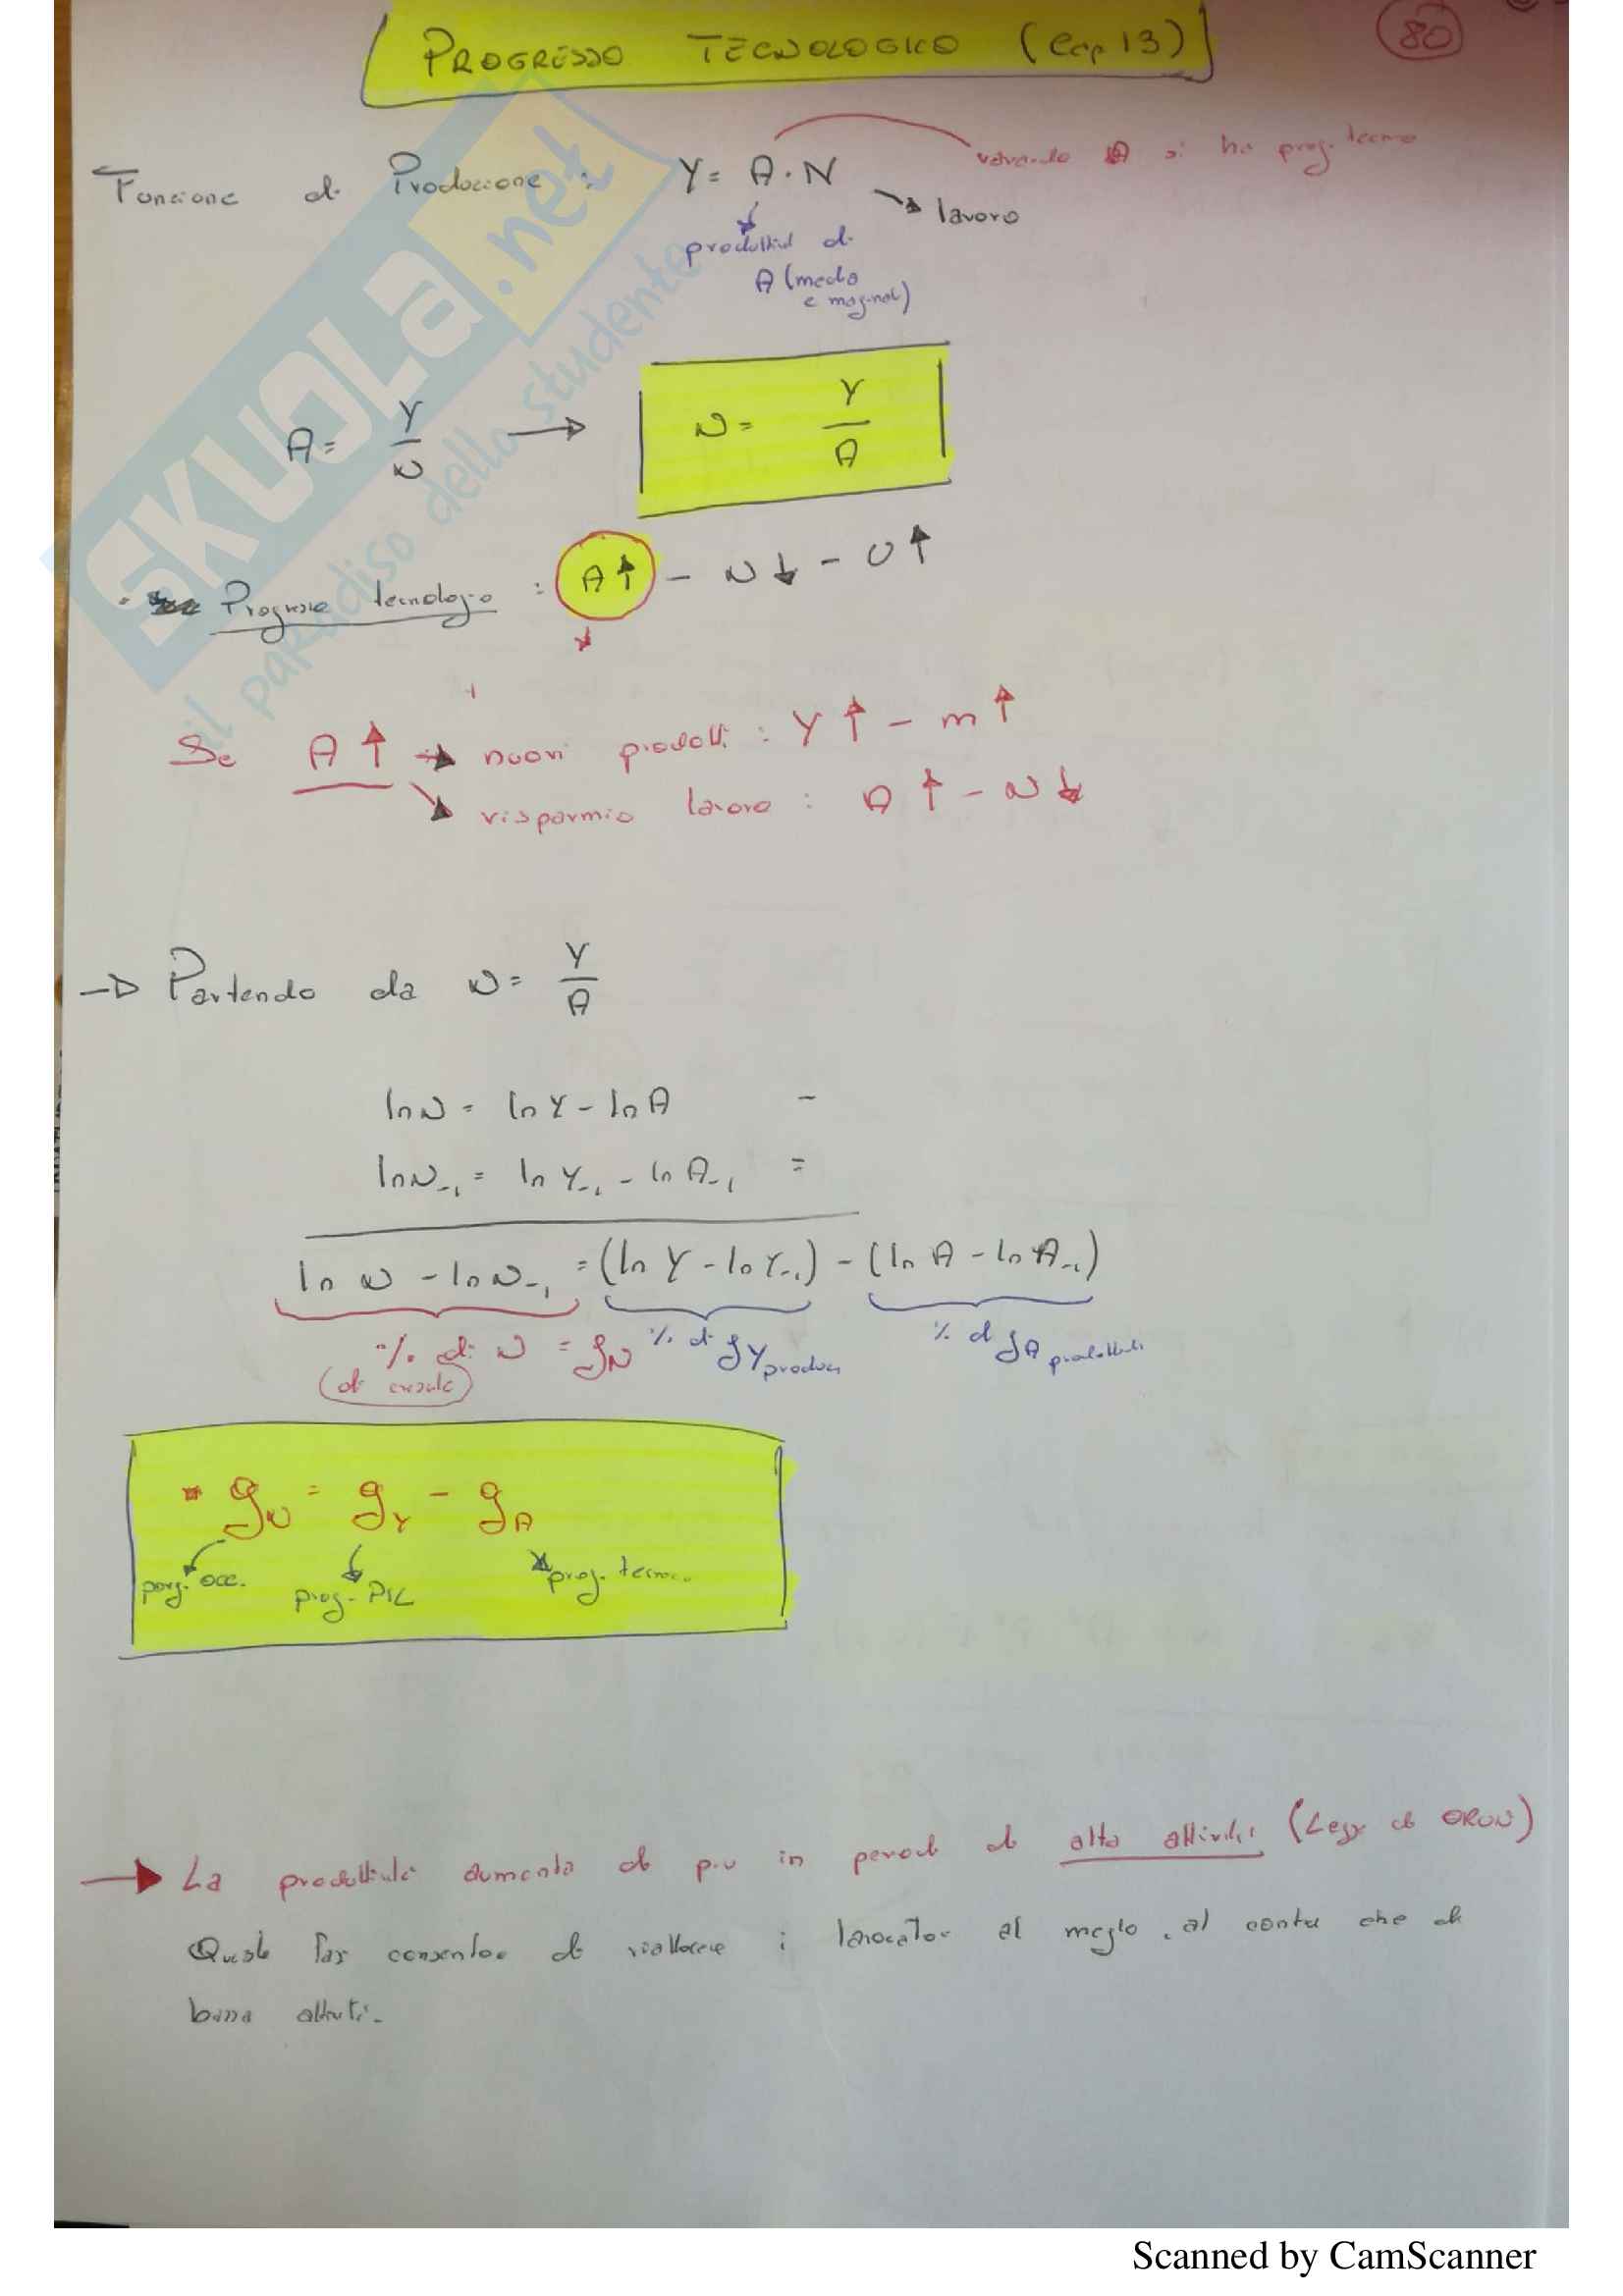 PROGRESSO TECNOLOGICO (Cap 13)
80
Funzione di Produzione : Y = A · N
variando A si ha prog. tecno
lavoro
produttiv di
A (media
e marginal)
A = Y/N → N = Y/A
Progresso tecnologio : A↑ - N↓ - U↑
Se A↑ → nuovi prodotti : Y↑ - m↑
risparmio lavoro : A↑ - N↓
→ Partendo da N = Y/A
ln N = ln Y - ln A -
ln N-1 = ln Y-1 - ln A-1 =
ln N - ln N-1 = (ln Y - ln Y-1) - (ln A - ln A-1)
% di N = gN % di gY produz % di gA
(di crescita)
gN = gY - gA
occ. prog. PIL prog. tecno
→ La produttività aumenta di più in periodi di alta attività (Legge di OKUN)
Queste fasi consentono di riallocare i lavorator al meglio, al contra che di
bassa attività.
SKUOLA.net
il paradiso dello studente
Scanned by CamScanner